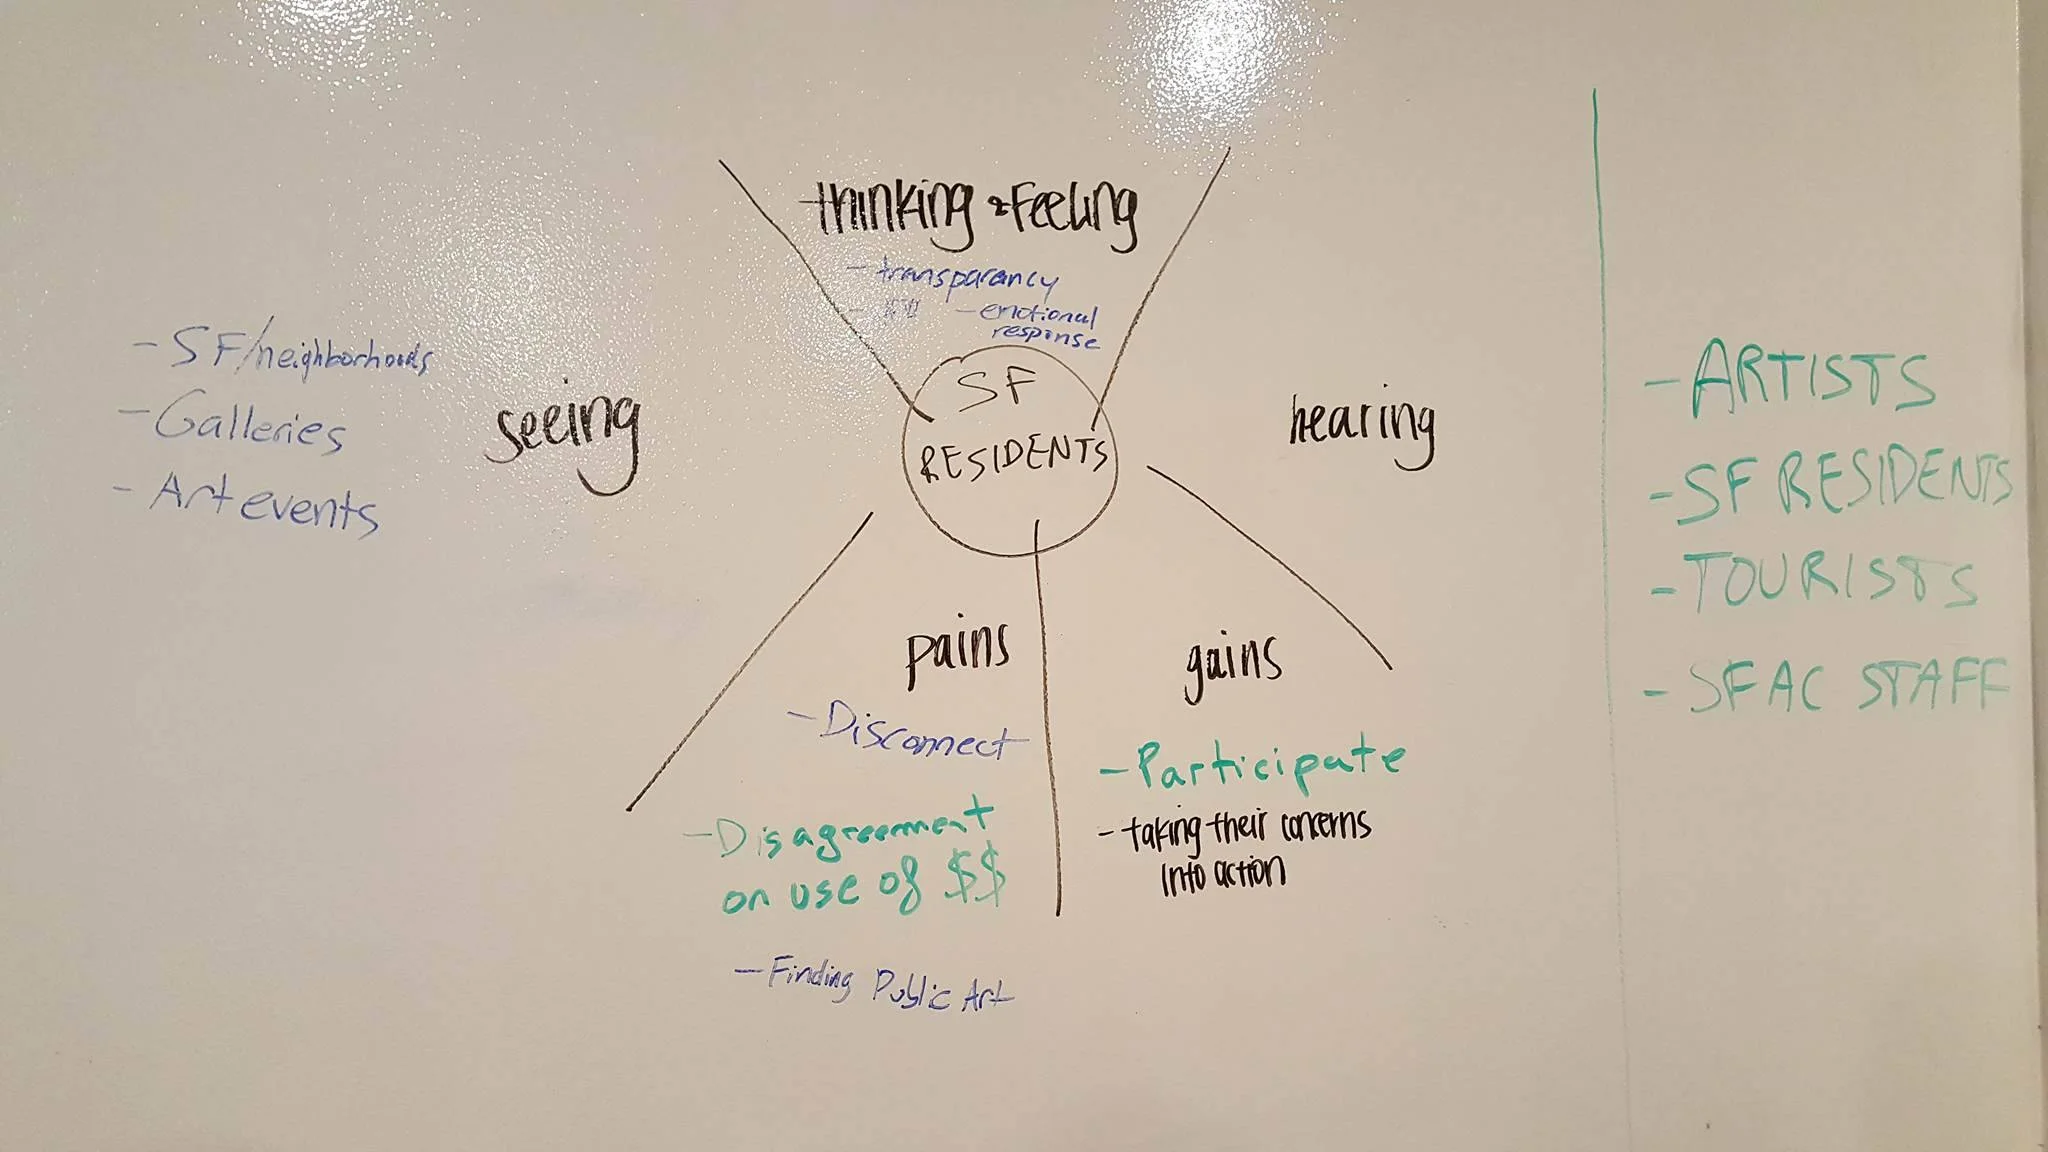 thinking & Feeling
- transparancy
- emotional
response
SF
RESIDENTS
seeing
- SF/neighborhoods
- Galleries
- Art events
hearing
pains
- Disconnect
- Disagreement
on use of $$
- Finding Public Art
gains
- Participate
- taking their concerns
into action
- ARTISTS
- SF RESIDENTS
- TOURISTS
- SFAC STAFF